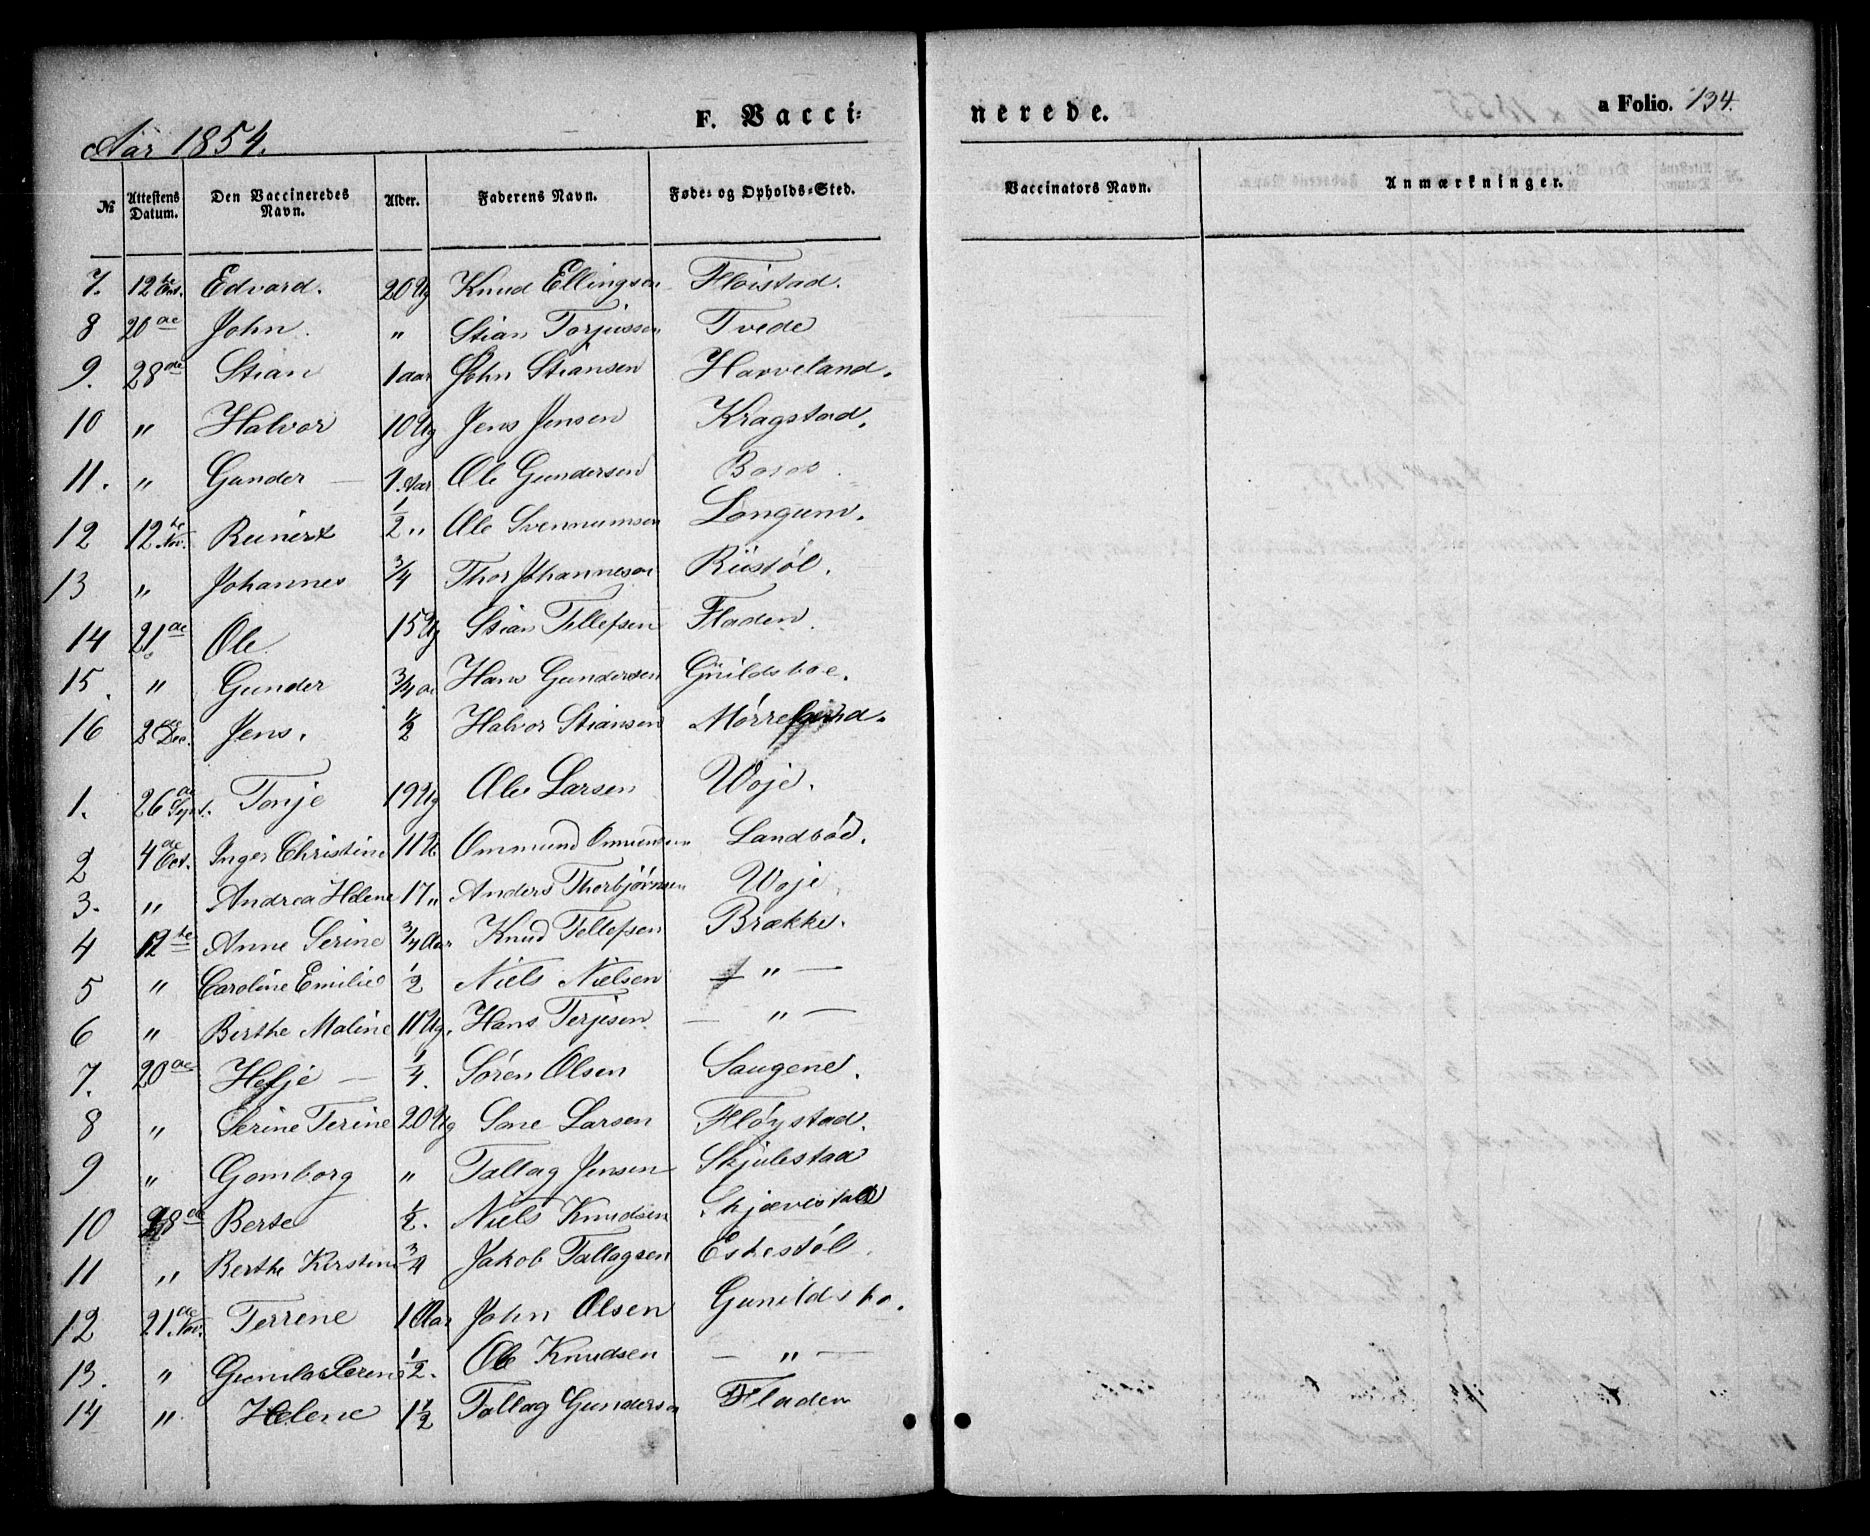 Aar 1854.
F. Vacci=
nerede.
a Folio. 134.
№ Attestens Datum. Den Vaccineredes Navn. Alder. Faderens Navn. Føde= og Opholds=Sted. Vaccinators Navn. Anmærkninger.
7. 12te Oct. Edvard. 20 Ug Knud Ellingsen Fløistad.
8 20de John. " Stian Torjussen Tvede
9. 28de Stian 1 aar John Stiansen Havveland.
10 " Halvor 10 Ug Jens Jensen Kragstad.
11. " Gunder — 1 Aar Ole Gundersen Boros.
12 12te Nov. Reinert 1/2 " Ole Svennumsen Longum.
13 " Johannes 3/4 Thor Johannesen Riistöl.
14 21de Ole 15 Ug Stian Tellefsen Fladen.
15. " Gunder 3/4 aa Hans Gundersen Gunildsboe.
16 28de Dec. Jens. 1/2 Halvor Stiansen Mørrefjerd.
1. 26de Sept. Tonje 19 Ug Ole Larsen Woje.
2 4de Oct. Inger Christine 11 U Ommund Ommundsen Landböe.
3. " Andrea Helene 17 " Anders Thorbjørnsen Woje.
4 12te Anne Serine 3/4 Aar Knud Tellefsen Brække.
5 " Caroline Emilie 1/2 Niels Nielsen — " —
6 " Birthe Maline 11 Ug. Hans Terjesen — " —
7. 20de Hefje — 1/4. Søren Olsen Saugene.
8 " Serine Terine 20 Ug Sone Larsen Fløystad.
9 " Gomborg " Tallag Jensen Skjulestad
10 28de Berte 1/2. Niels Knudsen Skjævestad
11 " Berthe Kirstine 3/4 Jakob Tallagsen Eskestöl.
12 21de Nov. Terrene 1 Aar John Olsen Gunildsbo.
13. " Gunila Serene 1/2. Ole Knudsen — " —
14 " Helene 1 1/2 Tallag Gundersen Fladen